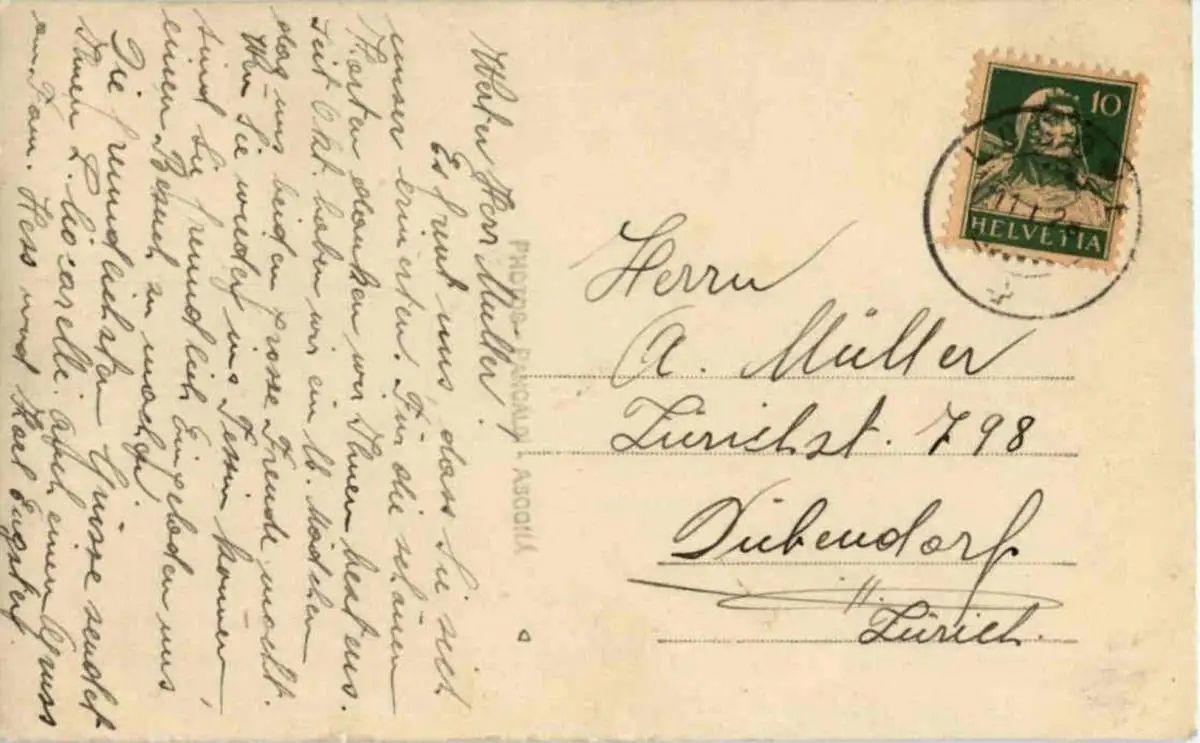 Werter Herr Müller.
Es freut uns, dass Sie sich
unser erinerten. Für die schönen
Karten danken wir Ihnen bestens.
Seit Okt. haben wir ein lb. Mädchen
das uns beiden grosse Freude macht.
Wen Sie wieder ins Tessin kommen
sind Sie freundlich Eingeladen uns
einen Besuch zu machen.
Die freundlichsten Grüsse sendet
Ihnen auch einen Gruss
an Fam. Hess und Karl
PHOTOS - PANCALDI - ASCONA
10
HELVETIA
Herrn
A. Müller
Zürichst. 798
Dübendorf
Zürich.